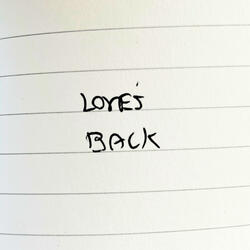 LOVE'S
BACK